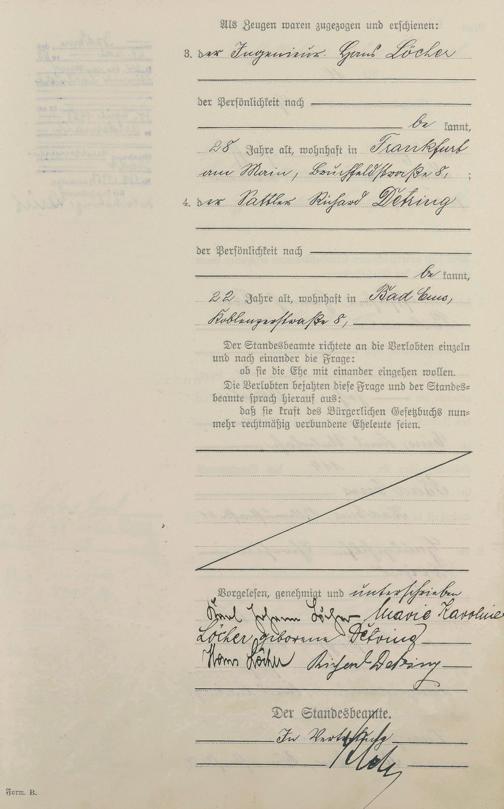 Als Zeugen waren zugezogen und erschienen:
3. der Ingenieur Hans Löcher
der Persönlichkeit nach
be kannt,
28 Jahre alt, wohnhaft in Frankfurt
am Main, Bruchfeldstraße 8, ;
4. der Sattler Richard Detring
der Persönlichkeit nach
be kannt,
22 Jahre alt, wohnhaft in Bad Ems,
Koblenzerstraße 8,
Der Standesbeamte richtete an die Verlobten einzeln
und nach einander die Frage:
ob sie die Ehe mit einander eingehen wollen.
Die Verlobten bejahten diese Frage und der Standes-
beamte sprach hierauf aus:
daß sie kraft des Bürgerlichen Gesetzbuchs nun-
mehr rechtmäßig verbundene Eheleute seien.
Vorgelesen, genehmigt und unterschrieben
Karl Johann Löcher Marie Karoline
Löcher geborene Detring
Hans Löcher Richard Detring
Der Standesbeamte.
In Vertretung
Form. B.